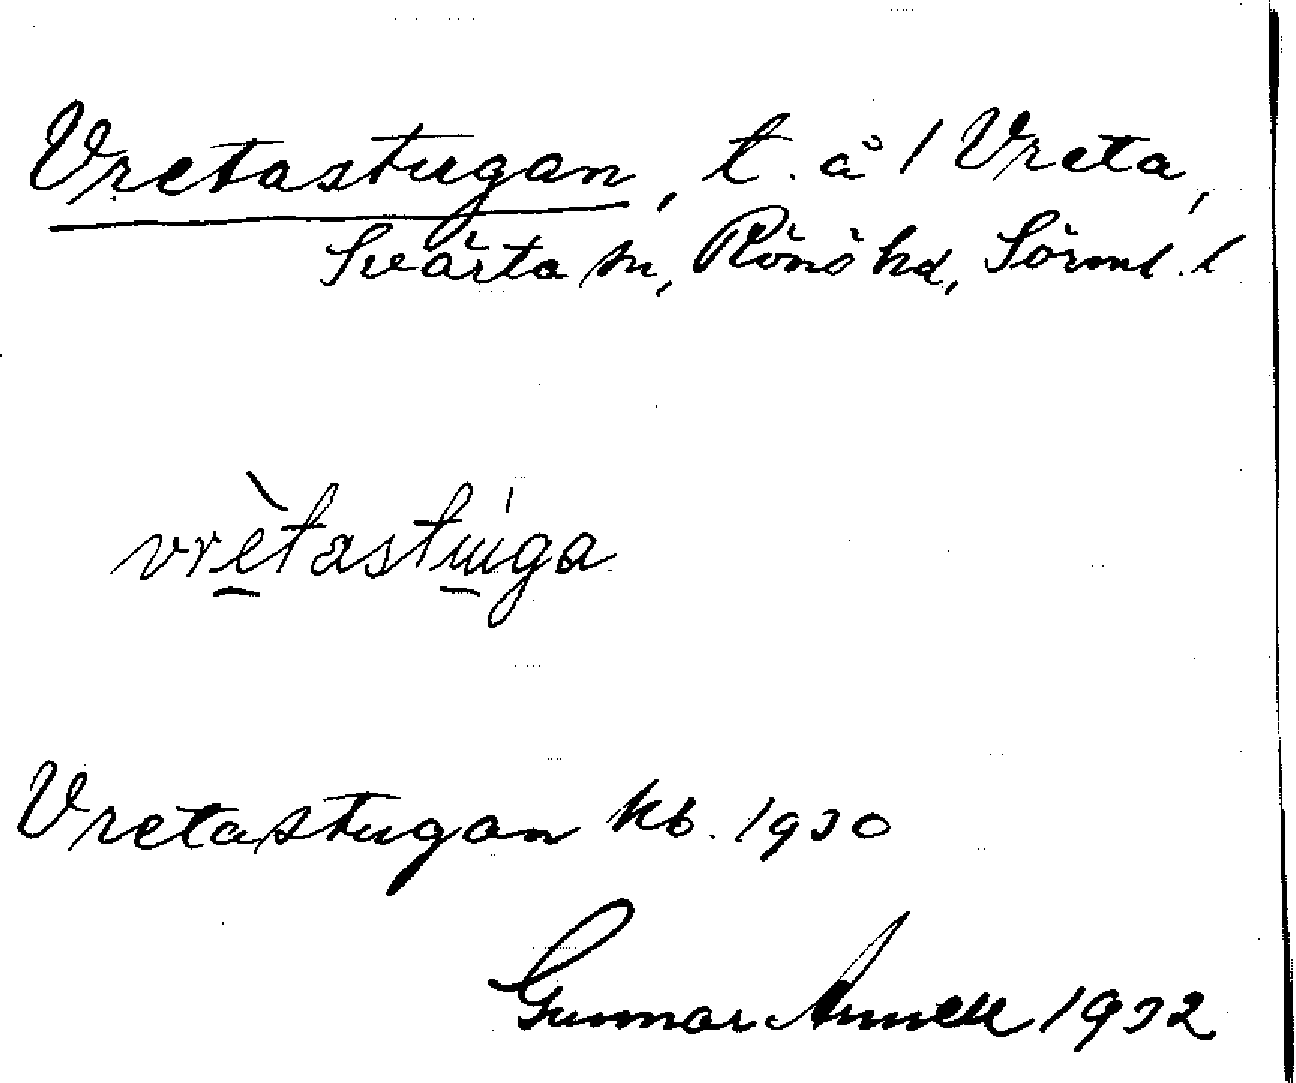 Vretastugan, t. å 1 Vreta,
Svärta sn, Rönö hd, Sörml. l
vrètastúga
Vretastugan kb. 1930
Gunnar Annell 1932